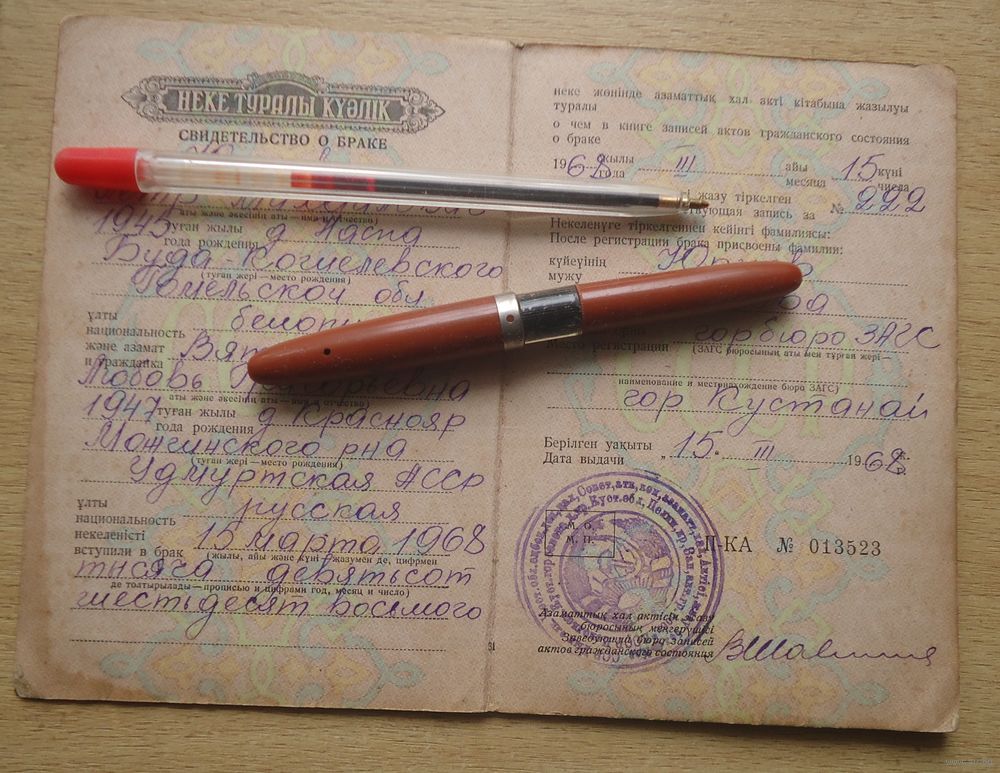 НЕКЕ ТУРАЛЫ КУӘЛІК
СВИДЕТЕЛЬСТВО О БРАКЕ
аты және әкесінің аты — имя и отчество)
1945 туған жылы д Наспа
года рождения
Буда-Кошелевского
(туған жері — место рождения)
Гомельской обл
ұлты
национальность
және азамат
и гражданка
Любовь Григорьевна
аты және әкесінің аты — имя и отчество)
1947 туған жылы д Краснояр
года рождения
Можгинского рна
(туған жері — место рождения)
Удмуртская АССР
ұлты русская
национальность
некелесті
вступили в брак 15 марта 1968
(жылы, айы және күні жазумен де, цифрмен
тысяча девятьсот
де толтырылады — прописью и цифрами год, месяц и число)
шестьдесят восьмого
31
неке жөнінде азаматтық хал акті кітабына жазылуы
туралы
о чем в книге записей актов гражданского состояния
о браке
1968 жылы III айы 15 күні
года месяца числа
жазу тіркелген
запись за № 222
Некелеуге тіркелгеннен кейінгі фамилиясы:
После регистрации брака присвоены фамилии:
күйеуінің
мужу
горбюро ЗАГС
Место регистрации (ЗАГС бюросының аты мен тұрған жері —
наименование и местонахождение бюро ЗАГС)
гор Кустанай
Берілген уақыты
Дата выдачи „15. III 1968
М. О.
М. П.
II-КА № 013523
Азаматтық хал актісін жазу
бюросының меңгерушісі
Заведующий бюро записей
актов гражданского состояния